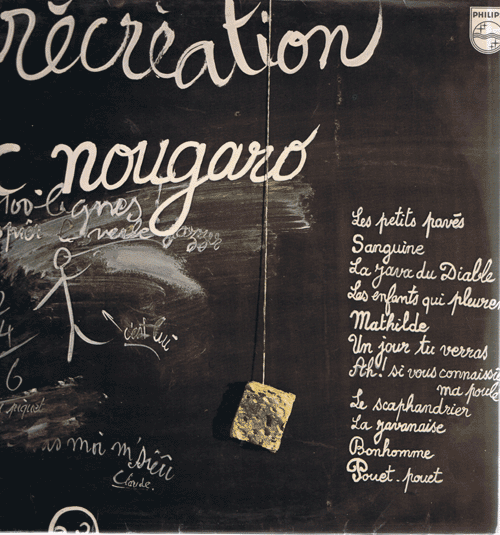 récréation
PHILIP
c nougaro
100 lignes
c'est lui
2
4
6
piquet
moi m'siëu
Claude.
Les petits pavés
Sanguine
La java du Diable
Les enfants qui pleure
Mathilde
Un jour tu verras
Ah! si vous connaissi
ma poule
Le scaphandrier
La javanaise
Bonhomme
Pouet-pouet